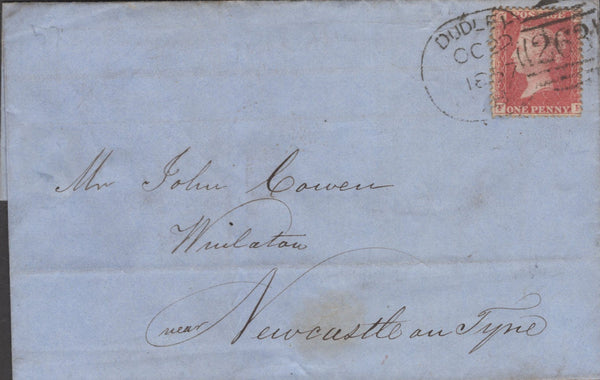 DUDLEY
OC 22
POSTAGE
ONE PENNY
Mr John Cowen
Winlaton
near Newcastle on Tyne